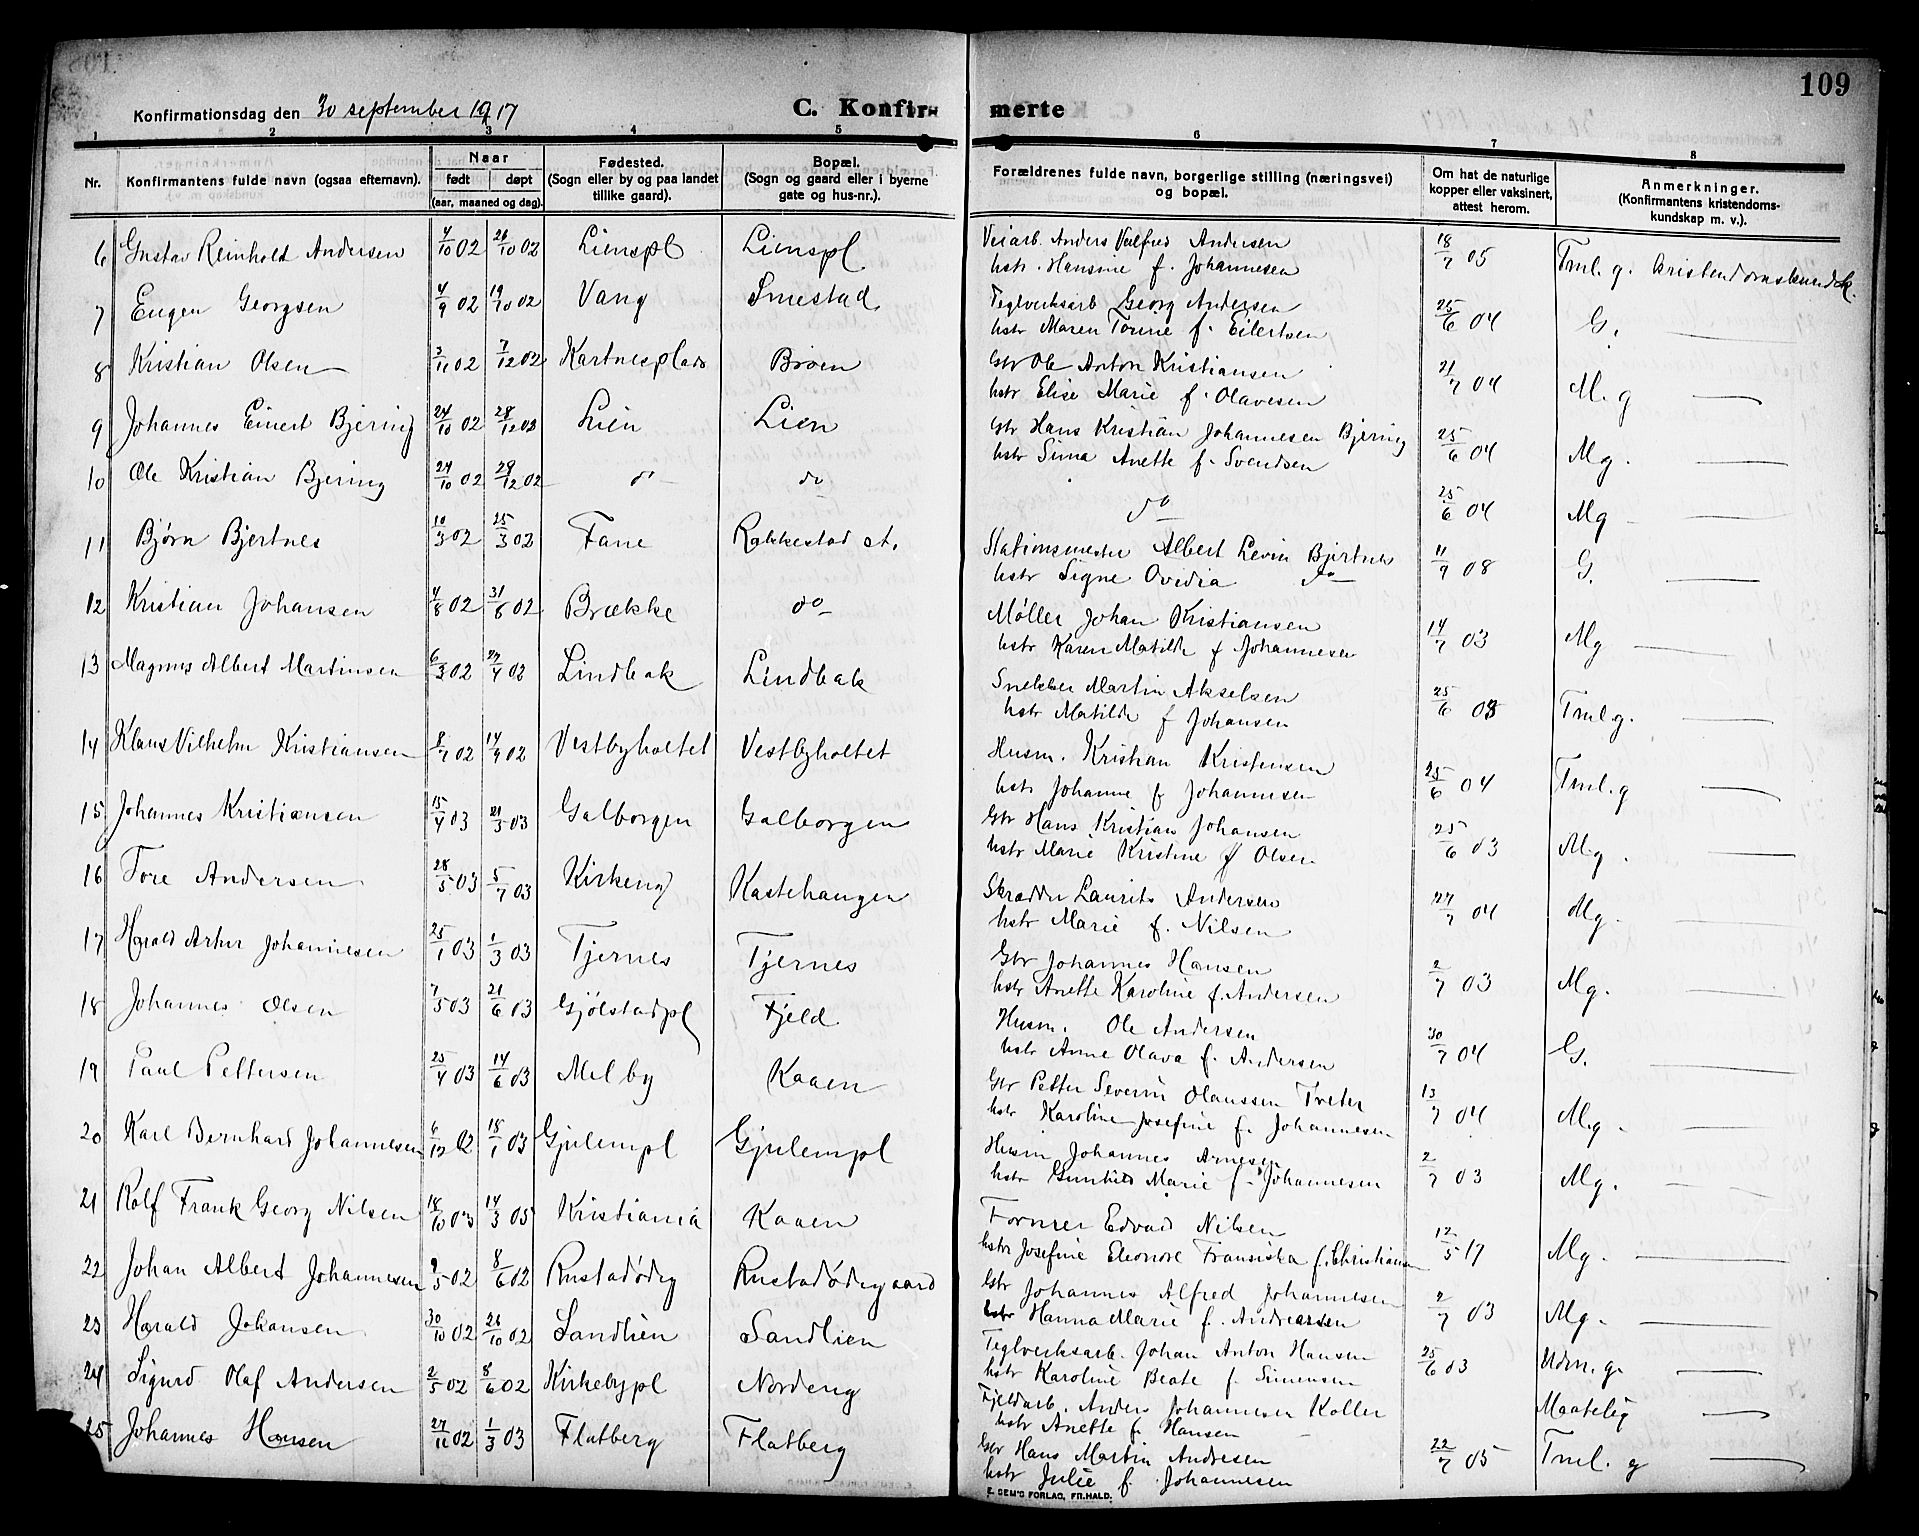 109
Konfirmationsdag den 30 september 1917
C. Konfirmerte
1 2 3 4 5 6 7 8
Nr. Konfirmantens fulde navn (ogsaa efternavn). Naar født døpt (aar, maaned og dag). Fødested. (Sogn eller by og paa landet tillike gaard). Bopæl. (Sogn og gaard eller i byerne gate og hus-nr.). Forældrenes fulde navn, borgerlige stilling (næringsvei) og bopæl. Om hat de naturlige kopper eller vaksinert, attest herom. Anmerkninger. (Konfirmantens kristendomskundskap m. v.).
6 Gustav Reinhold Andersen 4/10 02 26/10 02 Lienspl Lienspl Veiarb. Anders Valfred Andersen 18/7 05 Tml. g. kristendomskundsk.
hstr. Hansine f. Johannesen
7 Eugen Georgsen 4/9 02 19/10 02 Vang Smestad Teglverksarb Georg Andersen 25/6 04 G. —
hstr Maren Torine f. Eilertsen
8 Kristian Olsen 3/11 02 7/12 02 Kartnesplads Brøen Gbr Ole Anton Kristiansen 21/7 04 M. g —
hstr Elise Marie f. Olavesen
9 Johannes Einert Bjering 24/10 02 28/12 02 Lien Lien Gbr Hans Kristian Johannesen Bjering 25/6 04 Mg. —
hstr Sina Anette f. Svendsen
10 Ole Kristian Bjering 24/10 02 29/12 02 do do do 25/6 04 Mg —
11 Bjørn Bjertnes 10/3 02 25/3 02 Fane Rakkestad st. Stationsmester Albert Levin Bjertnes 11/9 08 G. —
hstr Signe Ovidia do
12 Kristian Johansen 4/8 02 31/8 02 Brække do Møller Johan Kristiansen 14/7 03 Mg —
hstr Karen Matilde f Johannesen
13 Magnus Albert Martinsen 6/3 02 27/4 02 Lindbak Lindbak Snekker Martin Akselsen 25/6 03 Tml g. —
hstr Matilde f Johansen
14 Klaus Vilhelm Kristiansen 8/7 02 14/9 02 Vestbyholtet Vestbyholtet Husm. Kristian Kristensen 25/6 04 Tml. g —
hstr Johanne f Johannesen
15 Johannes Kristiansen 15/4 03 21/5 03 Galborgen Galborgen Gbr Hans Kristian Johansen 25/6 03 M.g. —
hstr Marie Kristine f Olsen
16 Tore Andersen 28/5 03 5/7 03 Kirkeng Kastehaugen Skrædder Laurits Andersen 27/7 04 Mg. —
hstr Marie f. Nilsen
17 Harald Artur Johannesen 25/1 03 1/3 03 Tjernes Tjernes Gbr Johannes Hansen 2/7 03 Mg. —
hstr Anette Karoline f. Andersen
18 Johannes Olsen 7/5 03 21/6 03 Gjølstadpl Fjeld Husm. Ole Andersen 30/7 04 G. —
hstr Anne Olava f. Andersen
19 Paul Pettersen 25/4 03 14/6 03 Melby Kaaen Gbr Petter Severin Olaussen Treter 13/7 04 M.g. —
hstr Karoline Josefine f. Johannesen
20 Karl Bernhard Johannesen 6/12 02 18/1 03 Gjulempl Gjulempl Husm Johannes Arnesen 2/7 03 Mg. —
hstr Gunhild Marie f. Johannesen
21 Rolf Frank Georg Nilsen 18/10 03 14/3 05 Kristiania Kaaen Former Edvard Nilsen 12/5 17 Mg. —
hstr Josefine Eleonore Fransiska f. Christiansen
22 Johan Albert Johannesen 9/5 02 8/6 02 Rustadødeg Rustadødegaard Gbr Johannes Alfred Johannesen 2/7 03 Mg. —
hstr Hanna Marie f. Andreassen
23 Harald Johansen 30/10 02 26/10 02 Sandlien Sandlien Teglverksarb. Johan Anton Hansen 25/6 03 Udm. g. —
hstr Karoline Beate f Simensen
24 Sigurd Olaf Andersen 2/5 02 8/6 02 Kirkebypl Nordeng Fjeldarb. Anders Johannesen Koller Maatelig —
hstr Anette f. Hansen
25 Johannes Hansen 27/11 02 1/3 03 Flatberg Flatberg Gbr Hans Martin Andresen 22/7 05 Tml. g —
hstr Julie f. Johannesen
E. SEM'S FORLAG, FR.HALD.